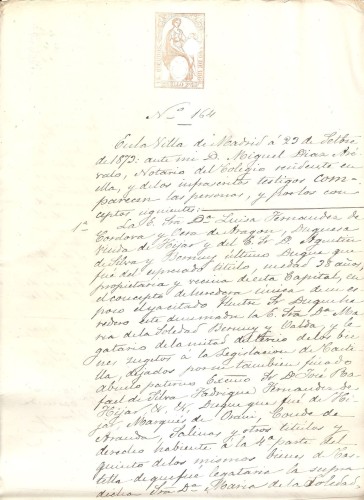 Nº 164
En la Villa de Madrid á 23 de
de 1873: ante mi D. Miguel Diaz Aré-
valo, Notario del Colegio residente en
ella, y de los infrascritos testigos com-
parecen las personas, y por los con-
ceptos siguientes:
1º La E. Sra. Dª Luisa Fernandez de
Cordova y Vera de Aragon, Duquesa
Viuda de Hijar y del E. Sr. D. Agustin
de Silva y Bernuy último Duque que
fué del espresado titulo, de edad 28 años,
propietaria y vecina de esta Capital, en
el concepto de heredera única de su es-
poso el ya citado Ilustre Sr. Duque he-
redero este de su madre la E. Sra. Dª Ma-
ria de la Soledad Bernuy y Valda, y le-
gatario de la mitad de tercio de los bie-
nes sugetos a la Legislacion de Casti-
lla, dejados por su tambien finado
abuelo paterno Excmo Sr. D. José Ra-
fael de Silva Rodrigue Fernandez de
Hijar Duque que fué de Hi-
jar, Marqués de Orani, Conde de
Aranda, Salinas y otros titulos y
derecho habiente á la 4ª parte del
quinto de los mismos bienes de Cas-
tilla de que fué legataria la supra
dicha Sra. Dª Maria de la Soledad